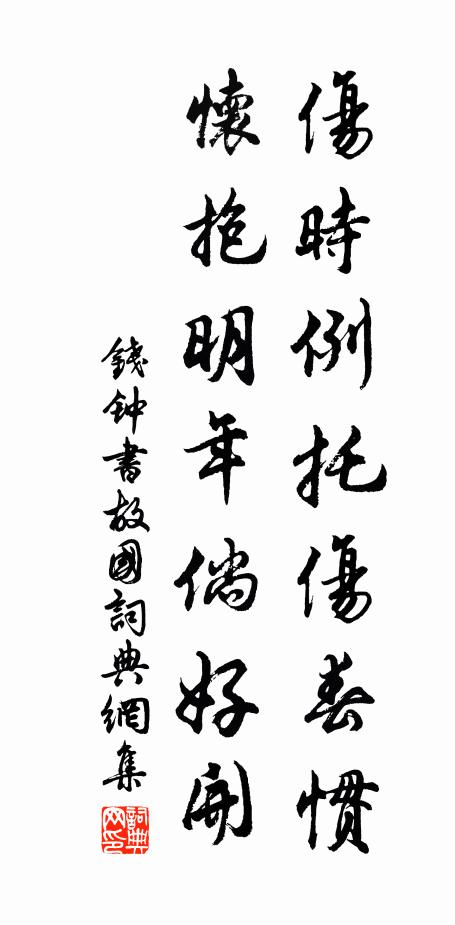 傷時例托傷春慣
懷抱明年倘好開
錢钟書故國詞典網集
詞典网印